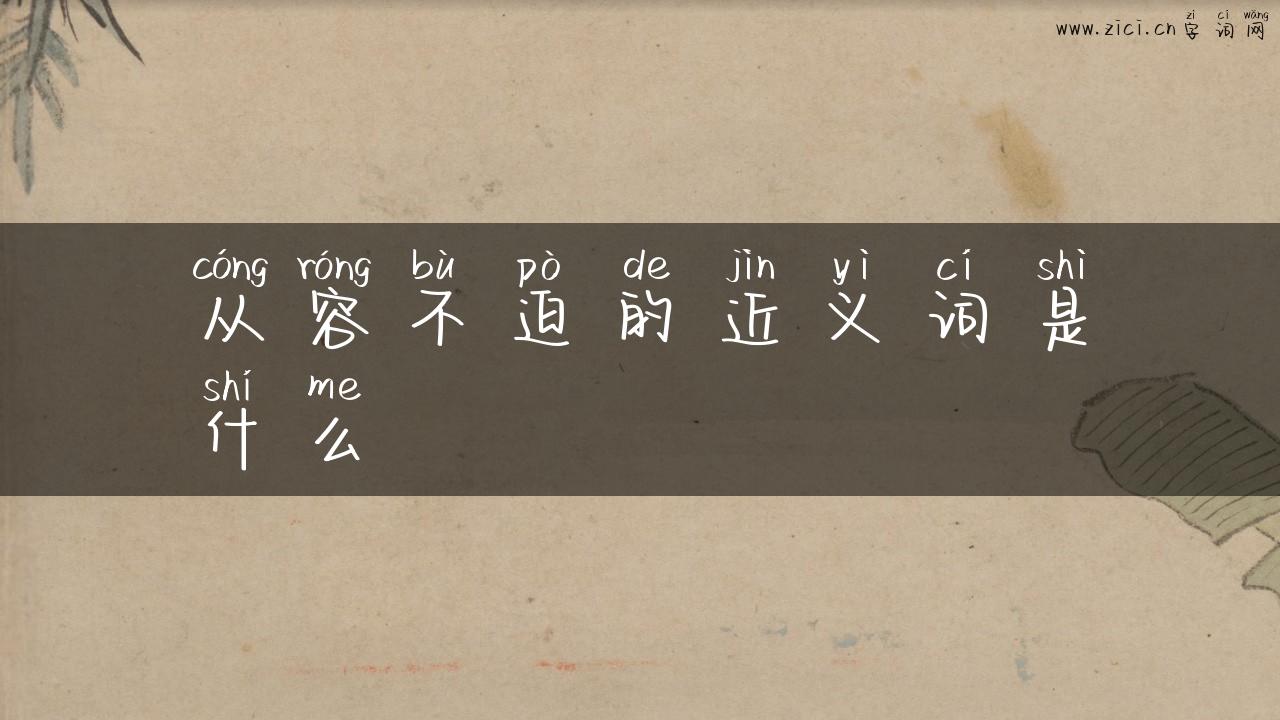 zì cí wǎng
www.zici.cn字词网
cóng róng bù pò de jìn yì cí shì
从容不迫的近义词是
shí me
什么